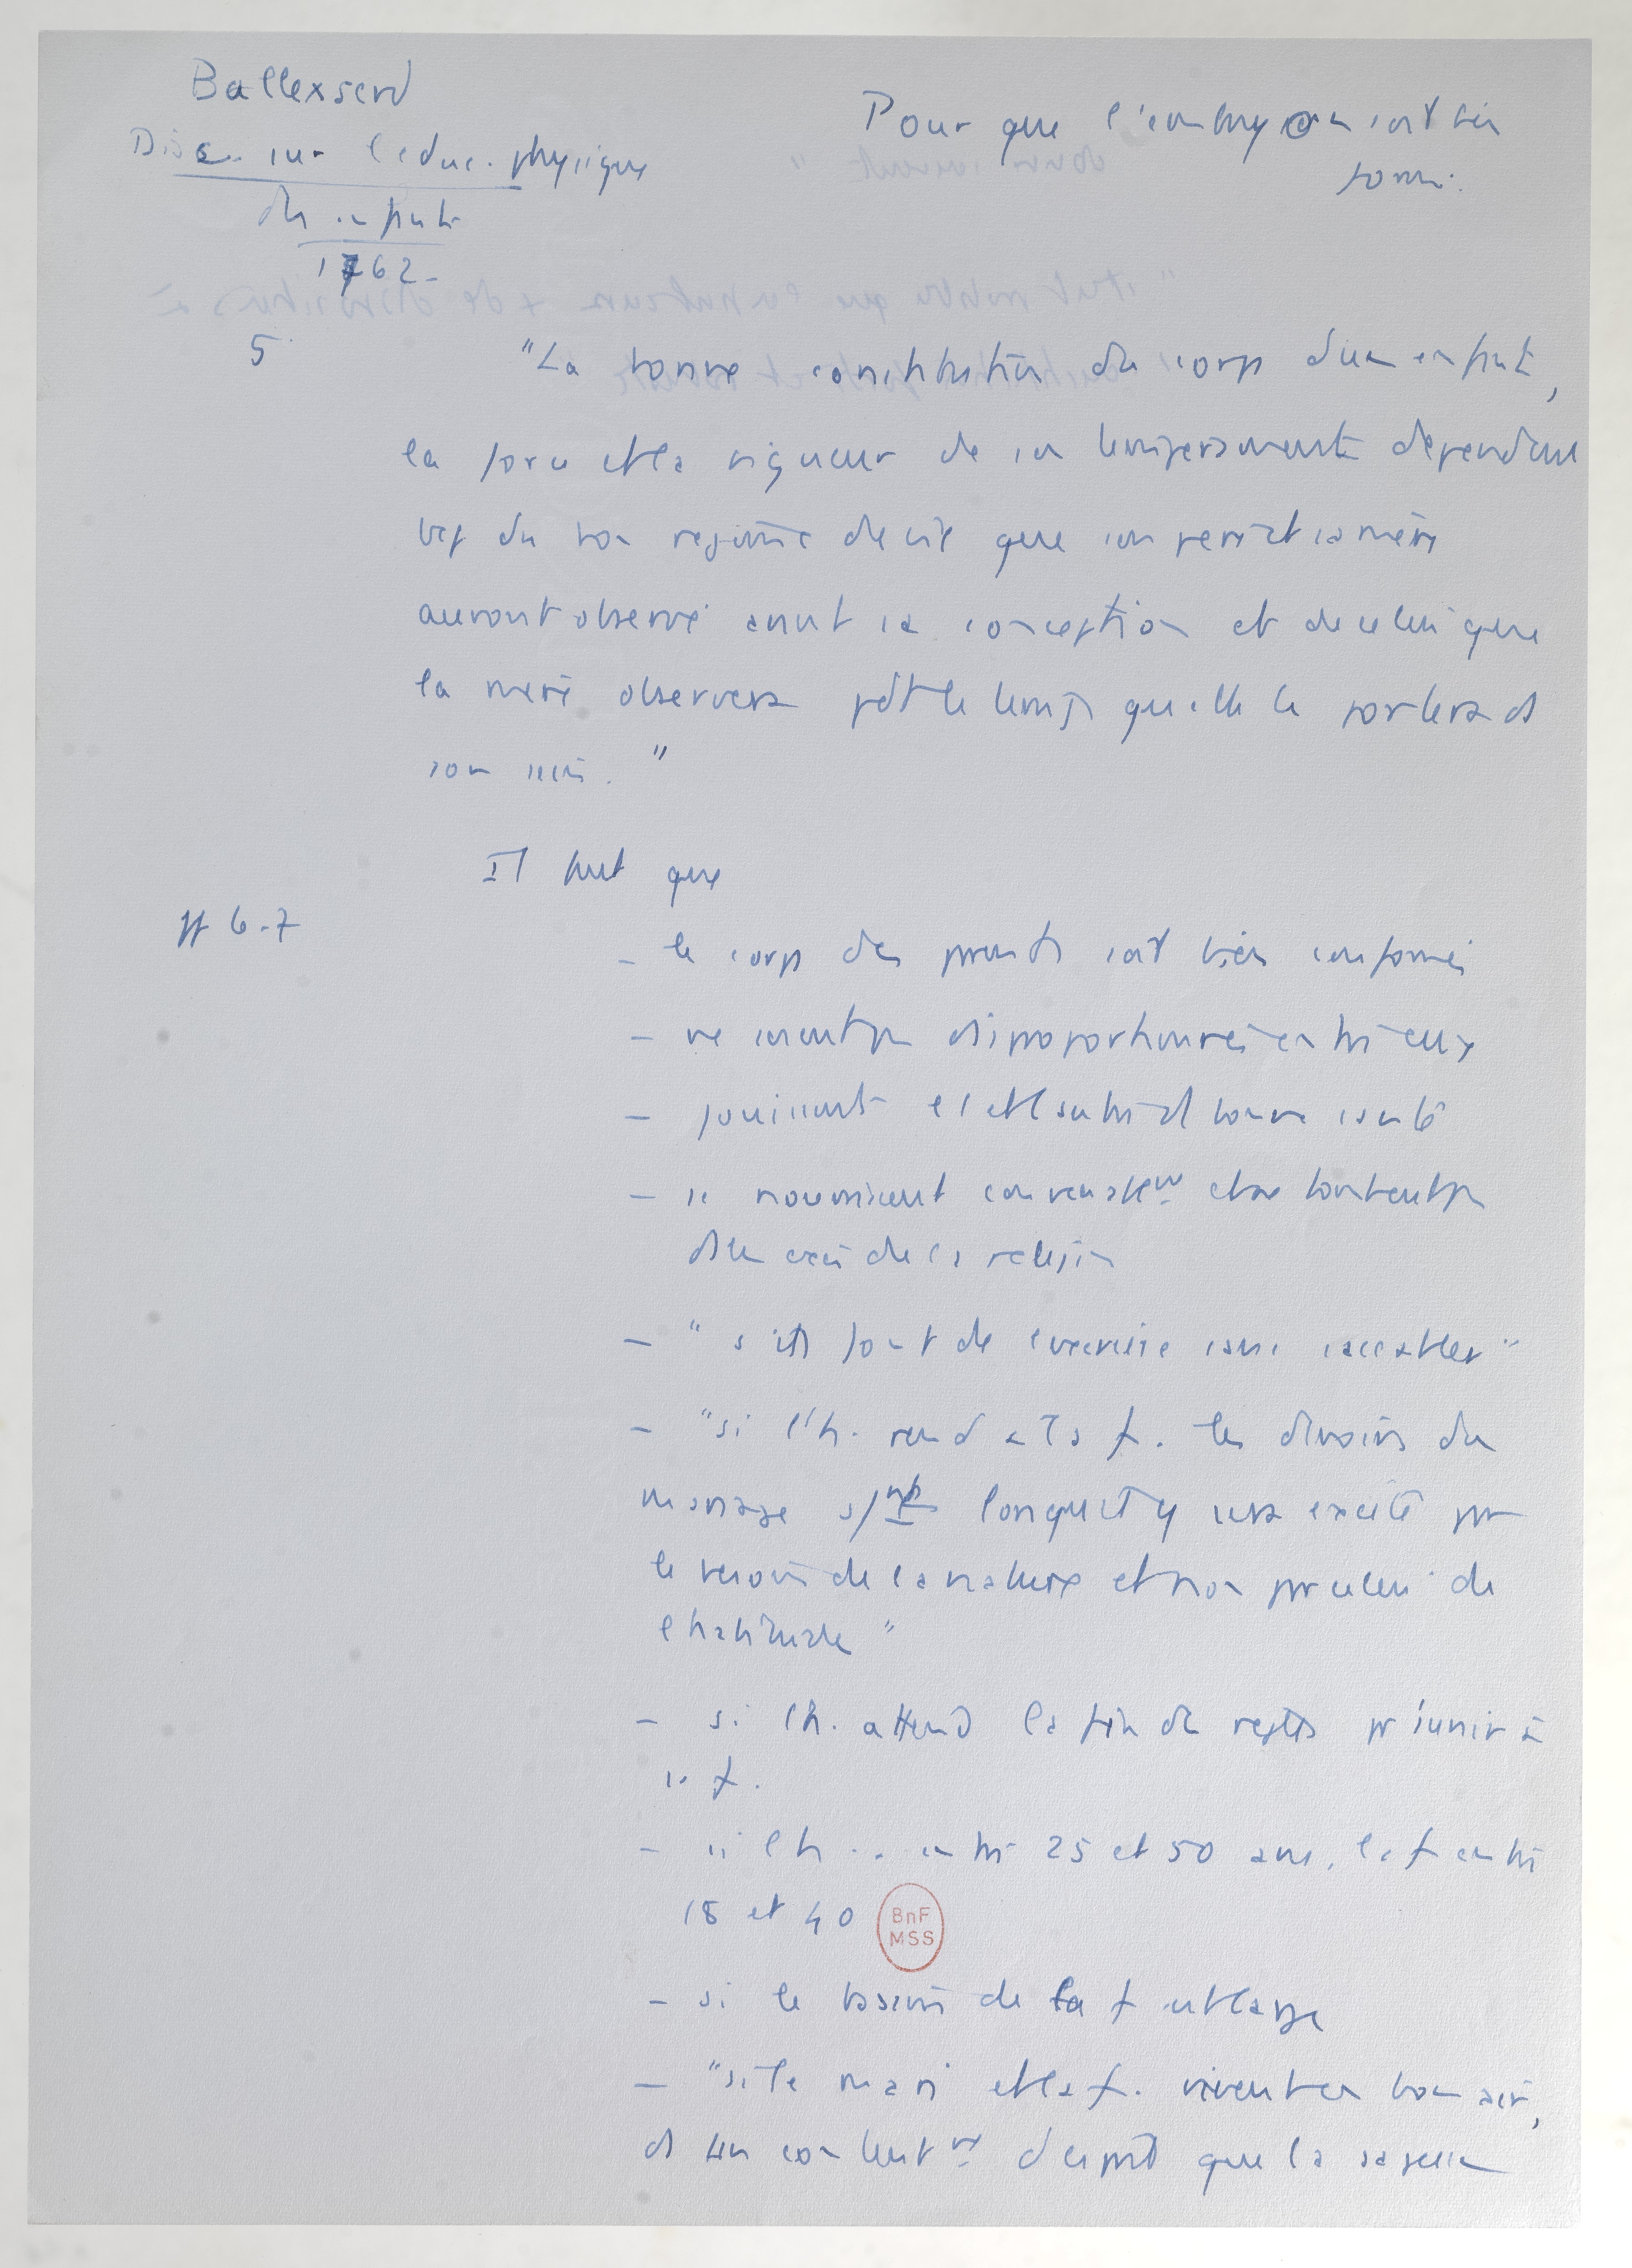 Ballexserd
Disc. sur l'educ. physique
des enfants
1762-
Pour que l'embryon soit bien
formé.
5
"La bonne constitution du corps d'un enfant,
la force et la vigueur de son temperament dependent
du bon regime de vie que son pere et sa mere
auront observé avant sa conception et de celui que
la mere observera pdt le temps qu'elle le portera ds
son sein."
Il faut que
pp 6-7
- le corps des parents soit bien conformé
- ne soient pas disproportionnés entre eux
- jouissent l'1 et l'autre d'1 bonne santé
- se nourrissent convenablemt et ne tombent pas
ds un excès de la
- "s'ils font de l'exercice sans s'accabler"
- "si l'h. rend à la f. les devoirs du
mariage slmt lorsqu'il y sera excité par
le besoin de la nature et non par celui de
l'habitude"
- si l'h. attend la fin des regles pr s'unir à
sa f.
- si l'h. .. entre 25 et 50 ans, la f entre
18 et 40
BnF
MSS
- si le bassin de la f est large
- "si le mari et la f. vivent en bon air,
ds un contentmt d'esprit que la sagesse